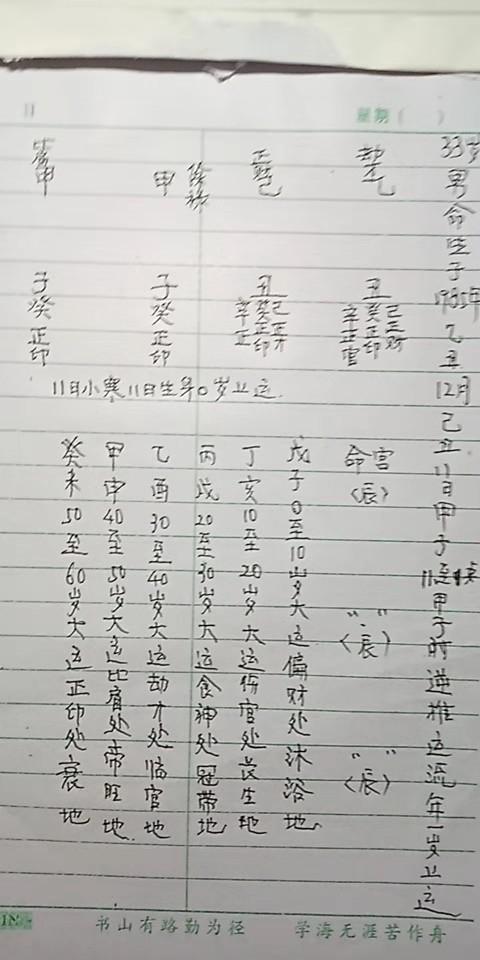 星期( )
33岁男命生于1985年乙丑12月己丑11日甲子11点甲子时逆推运流年一岁上运
劫才乙 正财己 甲 甲
丑 丑 子 子
己正财 癸正印 辛正官
己正才 癸正印 辛正
癸正印
癸正印
11日小寒11日生等0岁上运.
命宫(辰)
〃〃(辰)
〃〃(辰)
戊子0至10岁大运偏财处沐浴地
丁亥10至20岁大运伤官处长生地
丙戌20至30岁大运食神处冠带地
乙酉30至40岁大运劫才处临官地
甲申40至50岁大运比肩处帝旺地.
癸未50至60岁大运正印处衰地
书山有路勤为径 学海无涯苦作舟